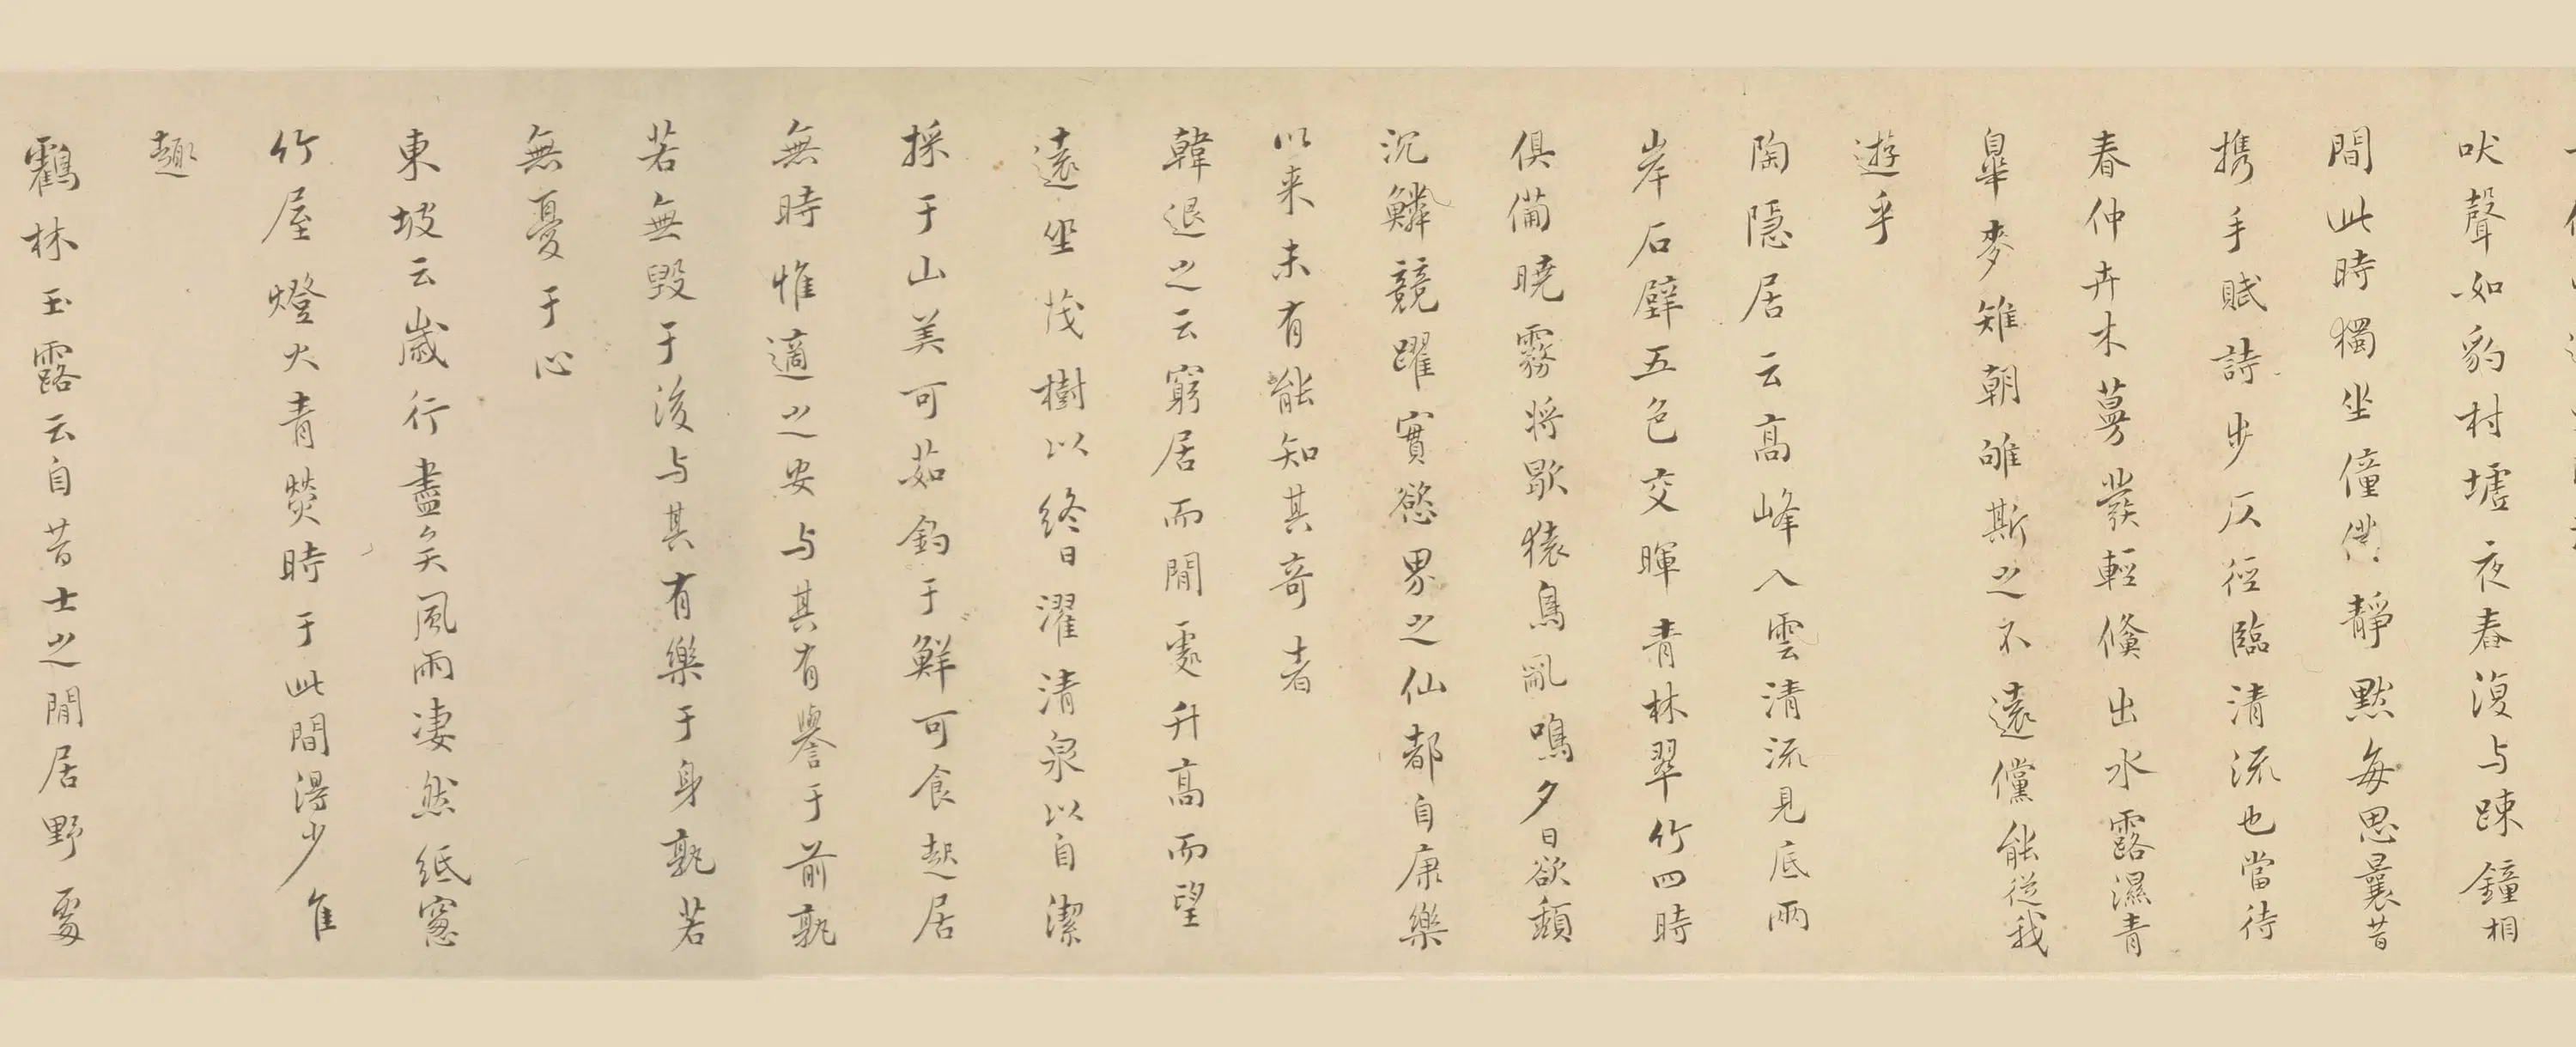 吠聲如豹村墟夜舂復与踈鐘相
間此時獨坐僮僕靜黙每思曩昔
携手賦詩步仄徑臨清流也當待
春仲卉木蔓發輕儵出水露濕青
皐麥雉朝雊斯之不遠儻能從我
遊乎
陶隱居云高峰入雲清流見底兩
岸石壁五色交暉青林翠竹四時
俱備曉霧将歇猿鳥亂鳴夕日欲頹
沉鱗競躍實慾界之仙都自康樂
以来未有能知其竒者
韓退之云窮居而閒處升高而望
遠坐茂樹以终日濯清泉以自潔
採于山美可茹釣于鮮可食起居
無時惟適之安与其有譽于前孰
若無毀于後与其有樂于身孰若
無憂于心
東坡云歲行盡矣風雨凄然紙窻
竹屋燈火青熒時于此間得少隹
趣
鸖林玉露云自昔士之閒居野處